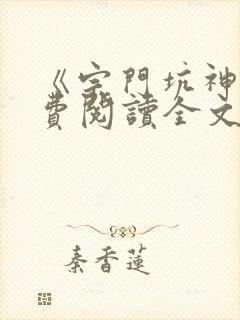 《宗門坑神
費閱讀全文
秦香蓮